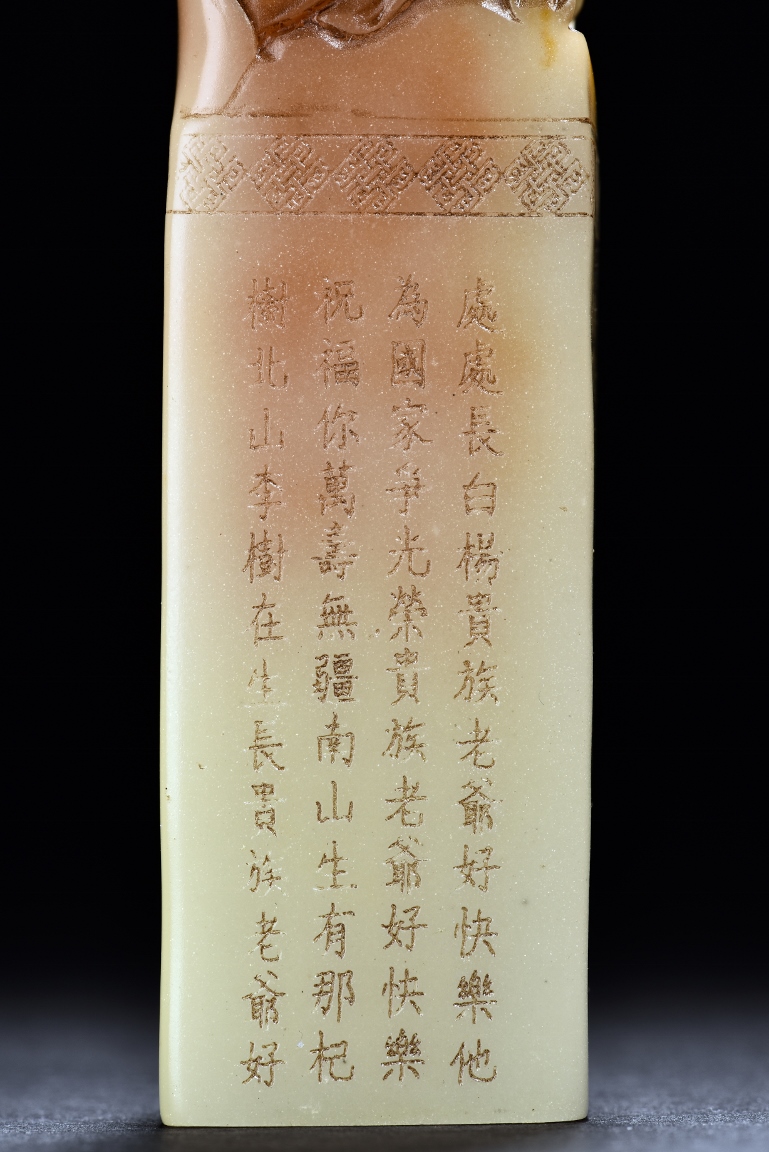 處處長白楊貴族老爺好快樂他
為國家爭光榮貴族老爺好快樂
祝福你萬壽無疆南山生有那杞
樹北山李樹在生長貴族老爺好